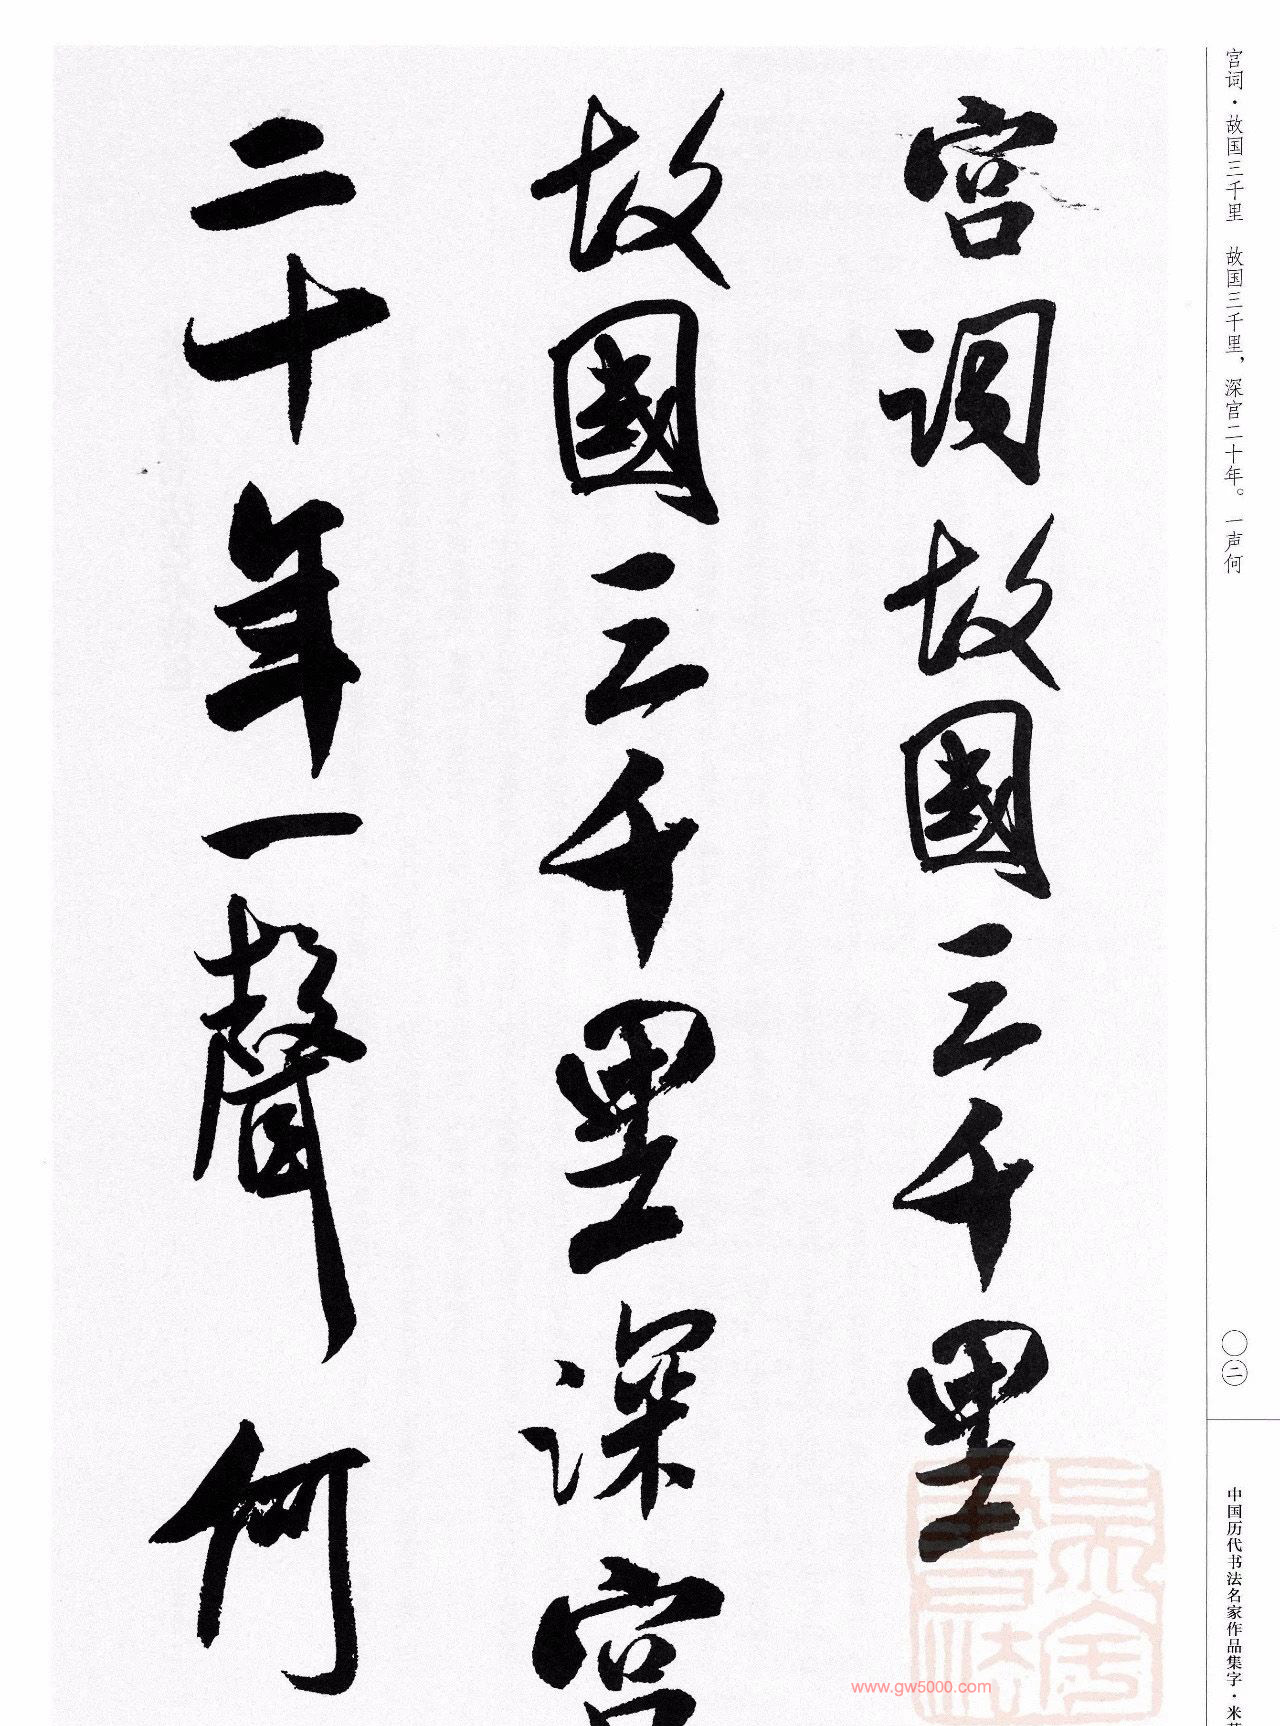 宫词·故国三千里　故国三千里，深宫二十年。一声何
宮詞故國三千里
故國三千里深宮
二十年一聲何
〇二
中国历代书法名家作品集字·米
www.gw5000.com